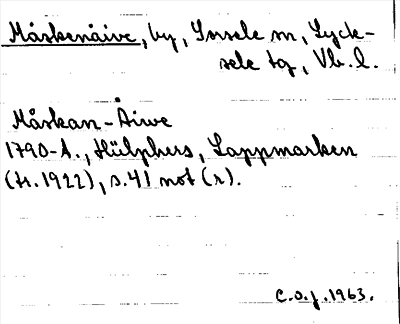 Måskenåive, by, Örsele sn, Lyck-
sele tg, Vb. l.
Måskan-Åiwe
1790-A., Hülphers, Lappmarken
(tr. 1922), s. 41 not (r).
C.O.J. 1963.